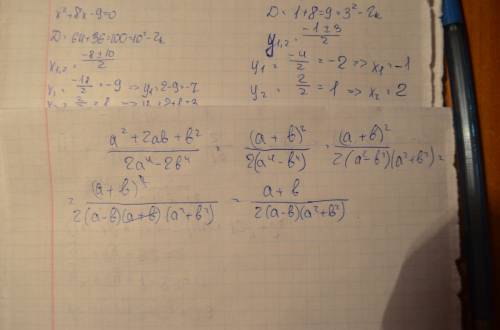 x²+8x-9=0
D=64+36=100=10²-2к
x₁,₂= (-8±10)/2
x₁= -18/2=-9 => y₁=2-9=-7
D=1+8=9=3²-2к
y₁,₂= (-1±3)/2
y₁= -4/2 = -2 => x₁=-1
y₂= 2/2 = 1 => x₂= 2
(a²+2ab+b²)/(2a⁴-2b⁴) = (a+b)²/(2(a⁴-b⁴)) = (a+b)²/(2(a²-b²)(a²+b²)) =
= (a+b)²/(2(a-b)(a+b)(a²+b²)) = (a+b)/(2(a-b)(a²+b²))